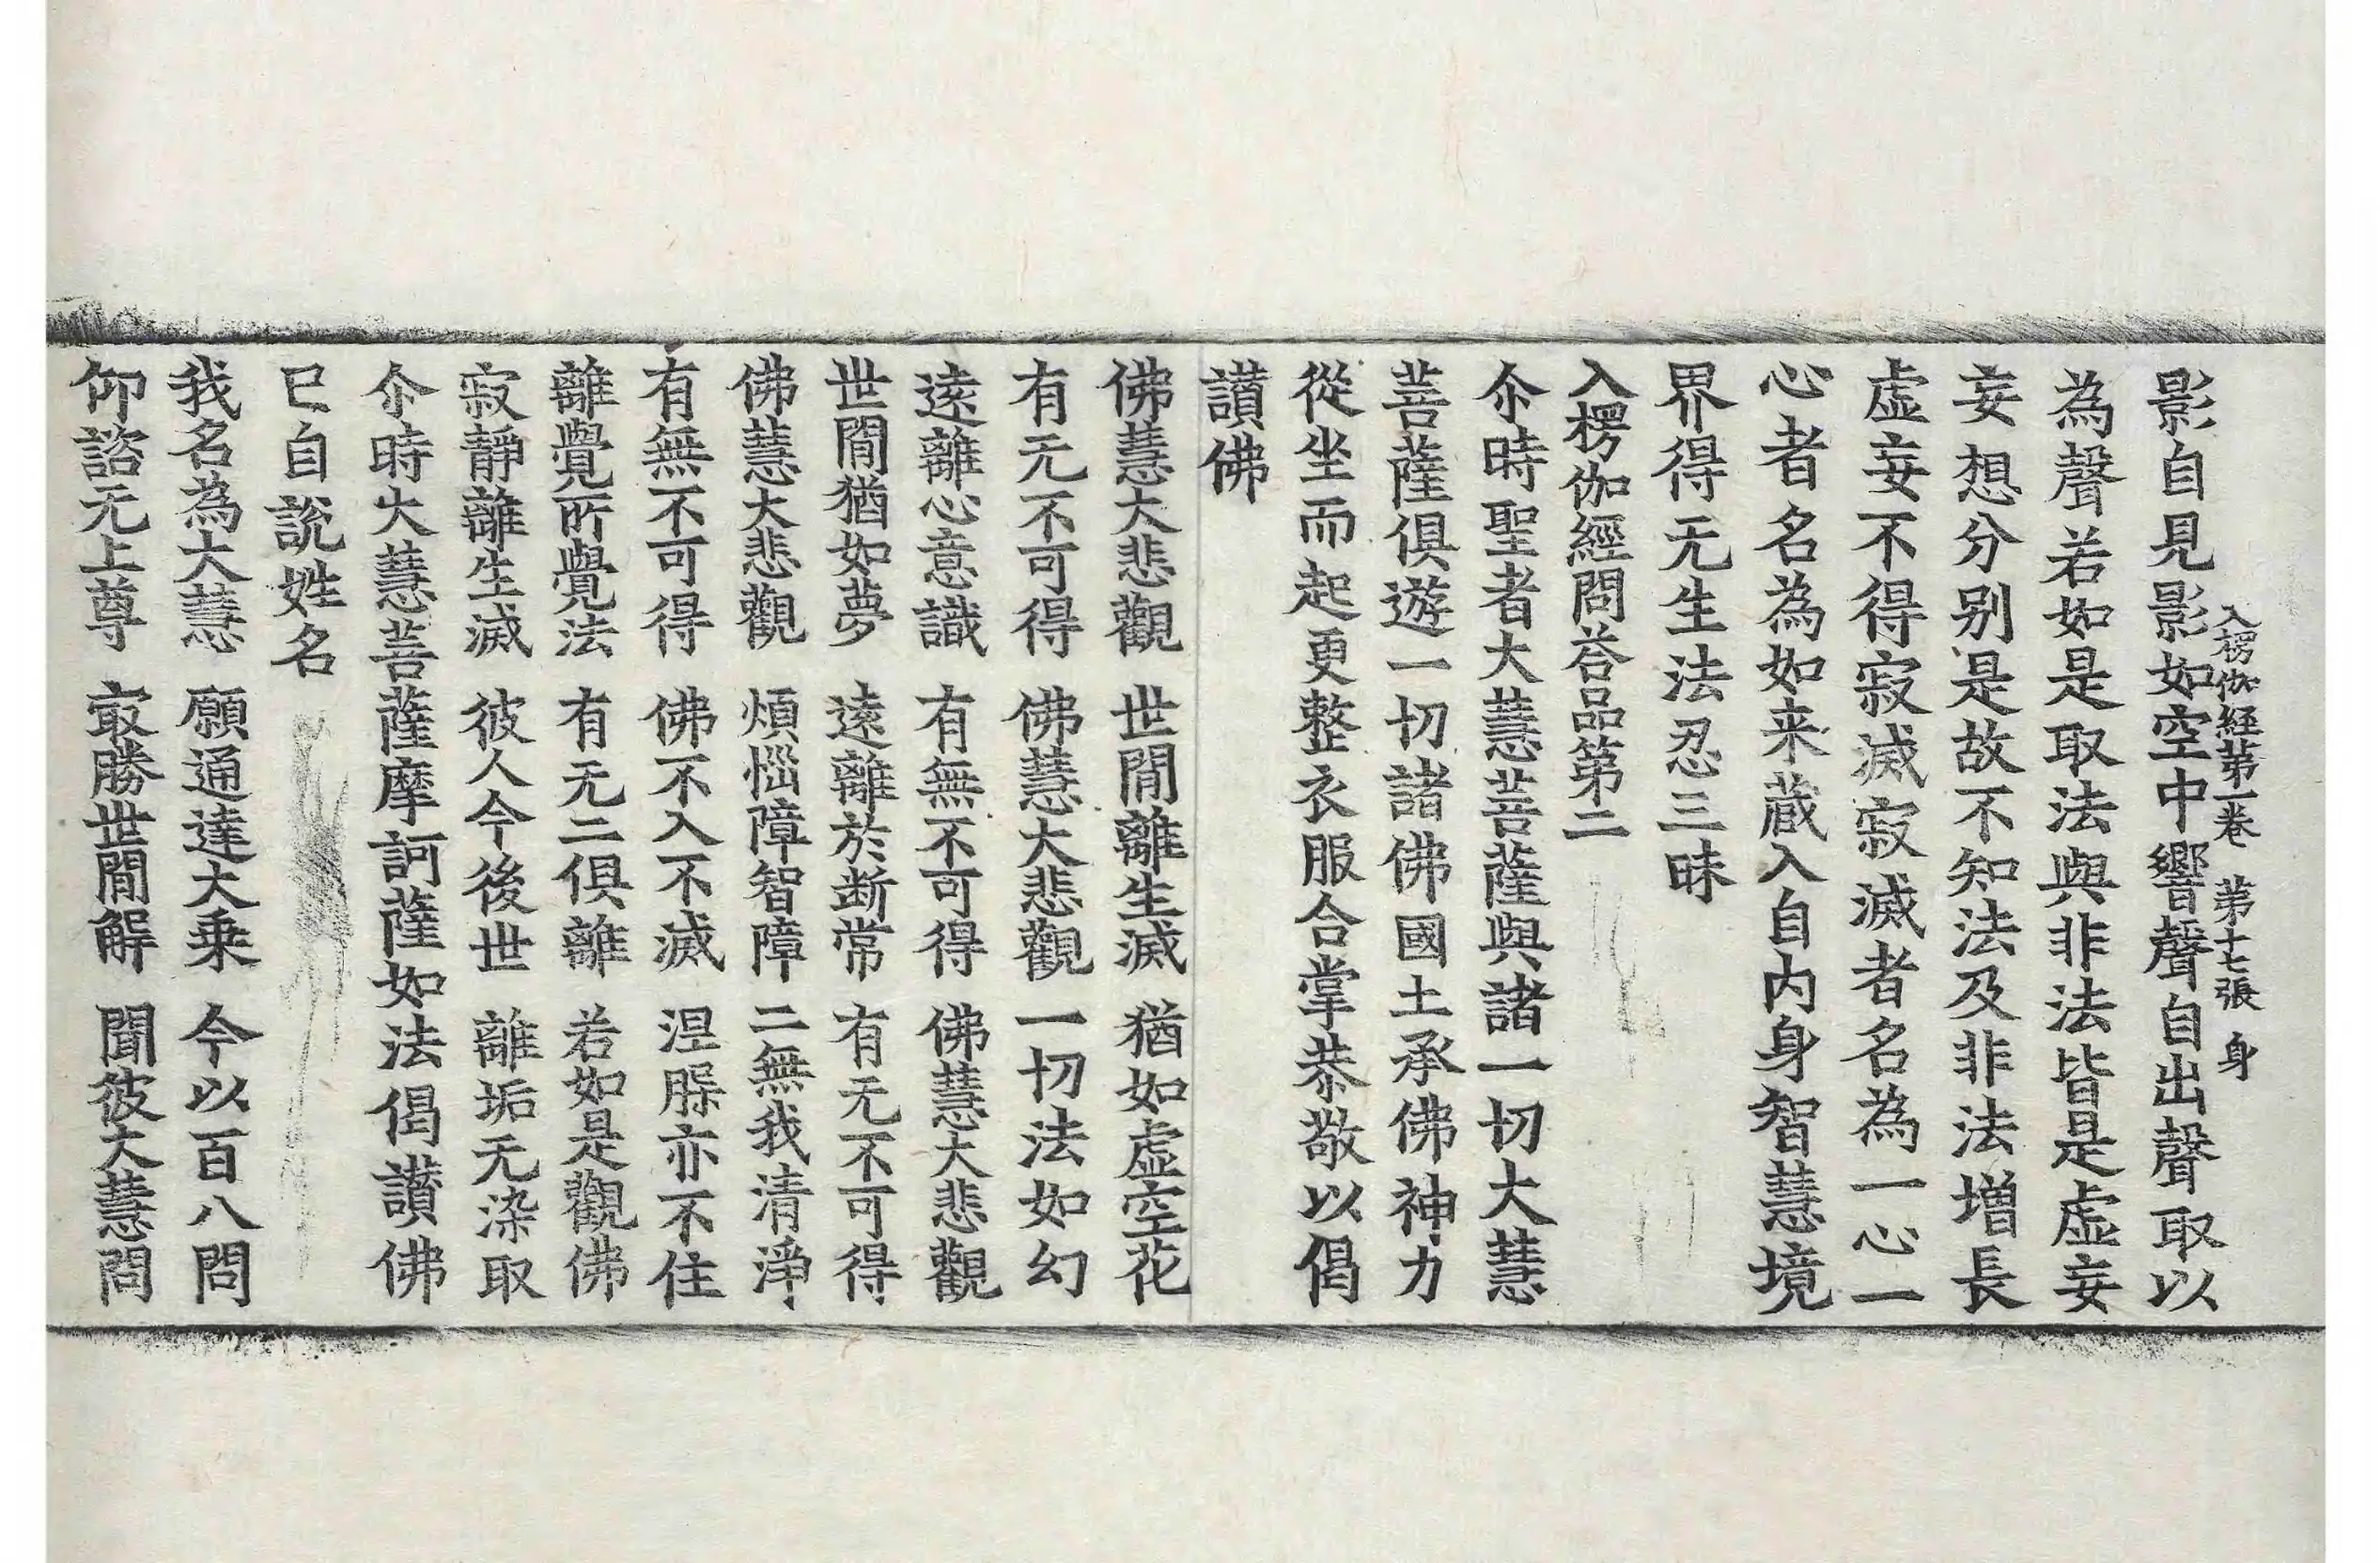 入楞伽経第一卷　第十七張　身
影自見影如空中響聲自出聲取以
為聲若如是取法與非法皆是虛妄
妄想分别是故不知法及非法增長
虛妄不得寂滅寂滅者名為一心一
心者名為如来蔵入自内身智慧境
界得无生法忍三昧
入楞伽經問荅品第二
尒時聖者大慧菩薩與諸一切大慧
菩薩俱遊一切諸佛國土承佛神力
從坐而起更整衣服合掌恭敬以偈
讃佛
佛慧大悲觀　世間離生滅　猶如虛空花
有无不可得　佛慧大悲觀　一切法如幻
遠離心意識　有無不可得　佛慧大悲觀
世間猶如夢　遠離於断常　有无不可得
佛慧大悲觀　煩惱障智障　二無我清淨
有無不可得　佛不入不滅　涅槃亦不住
離覺所覺法　有无二俱離　若如是觀佛
寂靜離生滅　彼人今後世　離垢无染取
尒時大慧菩薩摩訶薩如法偈讃佛
已自說姓名
我名為大慧　願通達大乗　今以百八問
仰諮无上尊　㝡勝世間解　聞彼大慧問